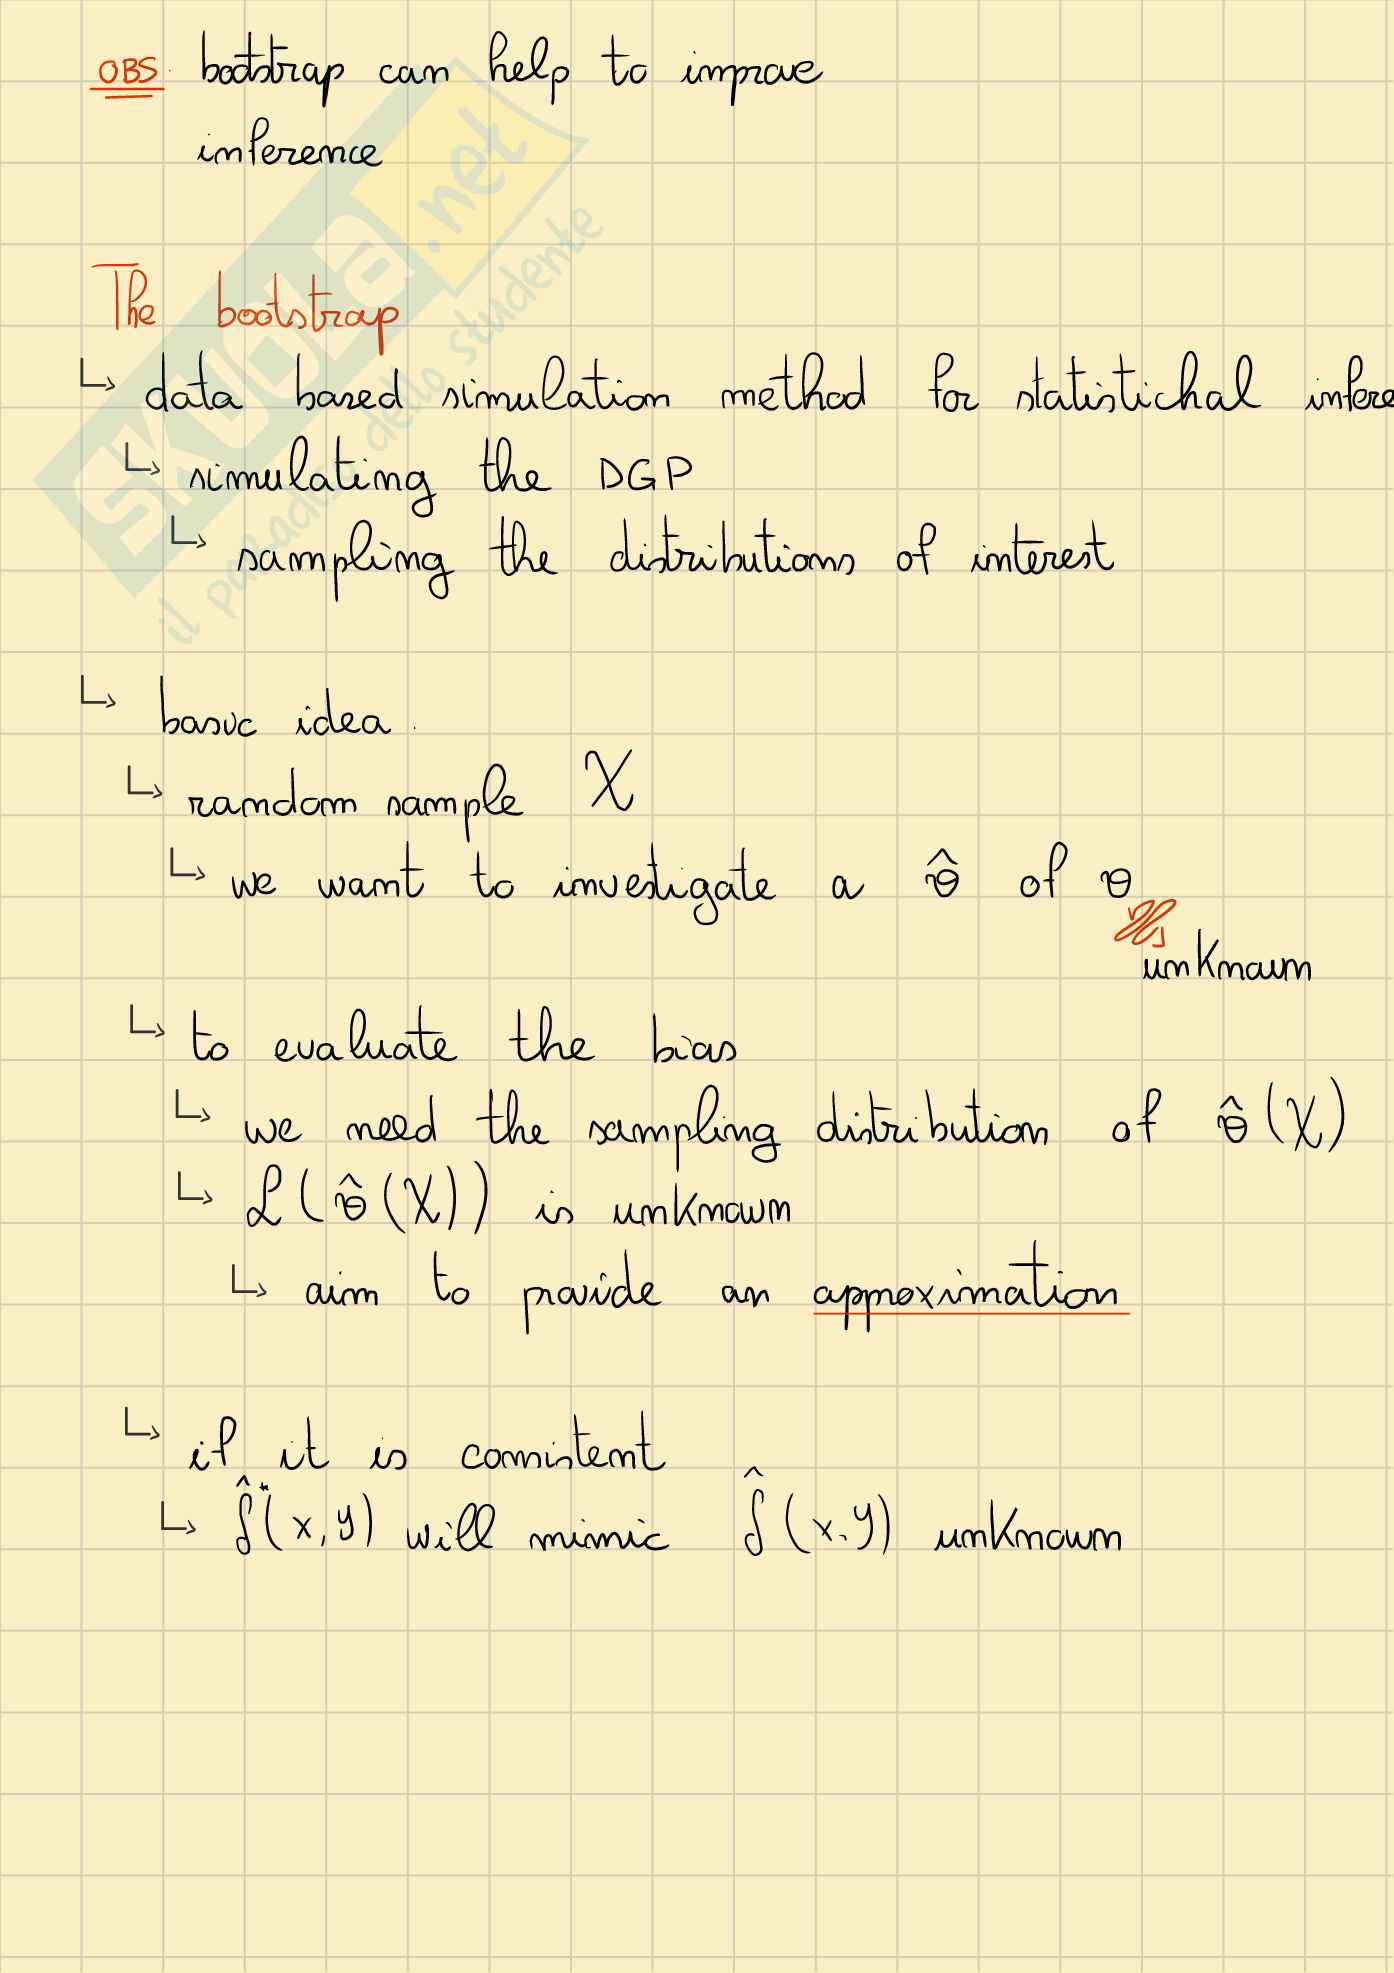 OBS. bootstrap can help to improve
inference
The bootstrap
↳ data based simulation method for statistichal infere
↳ simulating the DGP
↳ sampling the distributions of interest
↳ basic idea.
↳ random sample X
↳ we want to investigate a θ̂ of θ
unknown
↳ to evaluate the bias
↳ we need the sampling distribution of θ̂(X)
↳ L(θ̂(X)) is unknown
↳ aim to provide an approximation
↳ if it is consistent
↳ f̂*(x,y) will mimic f̂(x,y) unknown
SKUOLA.net
il paradiso dello studente